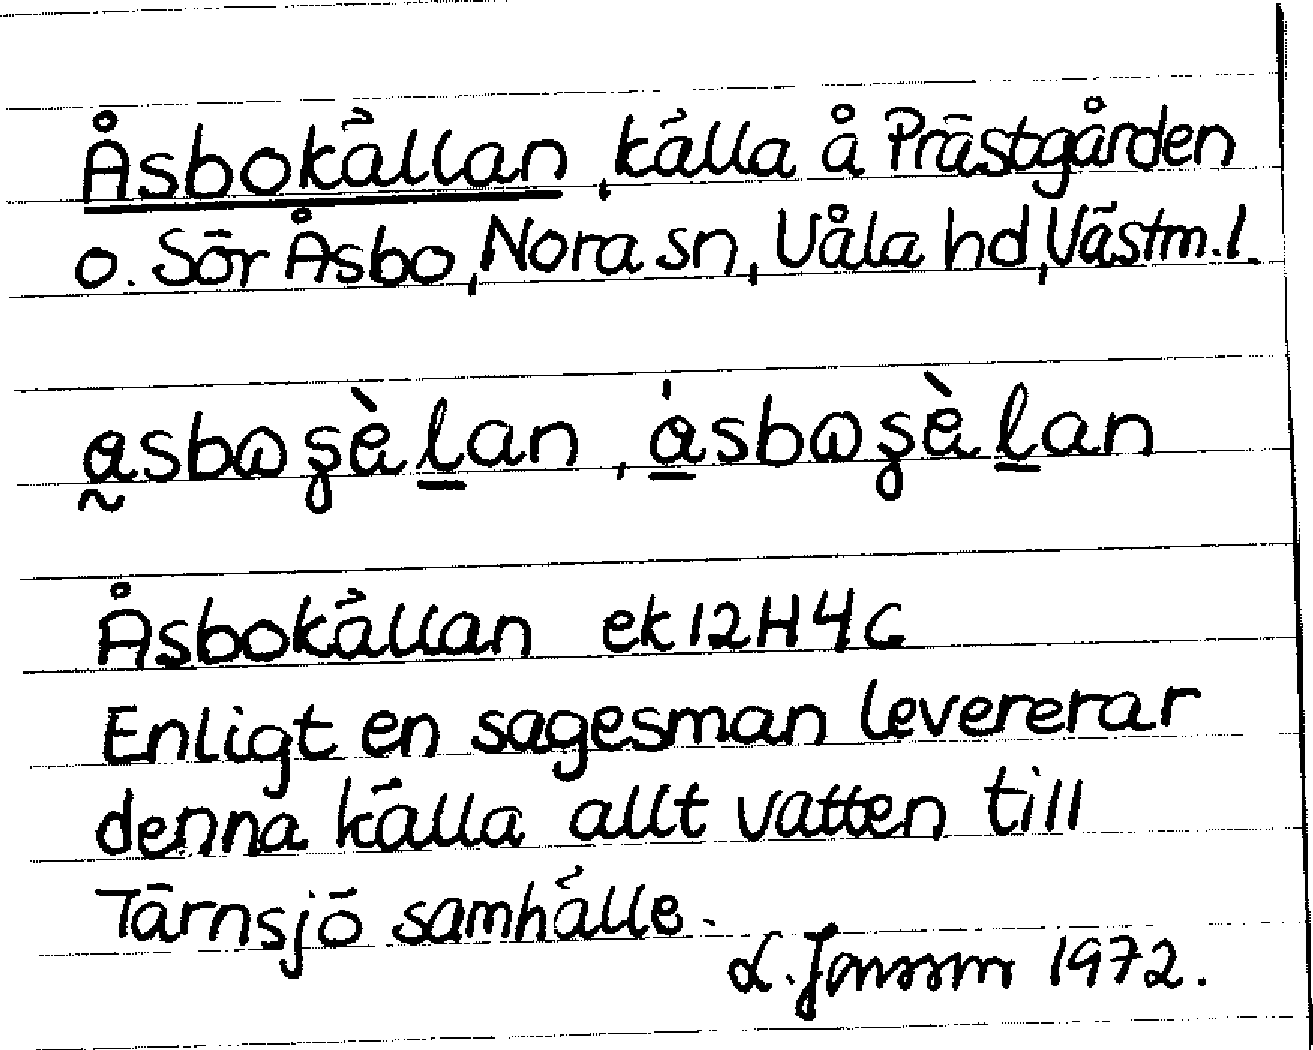 Åsbokällan, källa å Prästgården
o. Sör Åsbo, Nora sn, Våla hd, Västm. l.
Åsbokällan ek 12H4c
Enligt en sagesman levererar
denna källa allt vatten till
Tärnsjö samhälle.
L. Jonsson 1972.